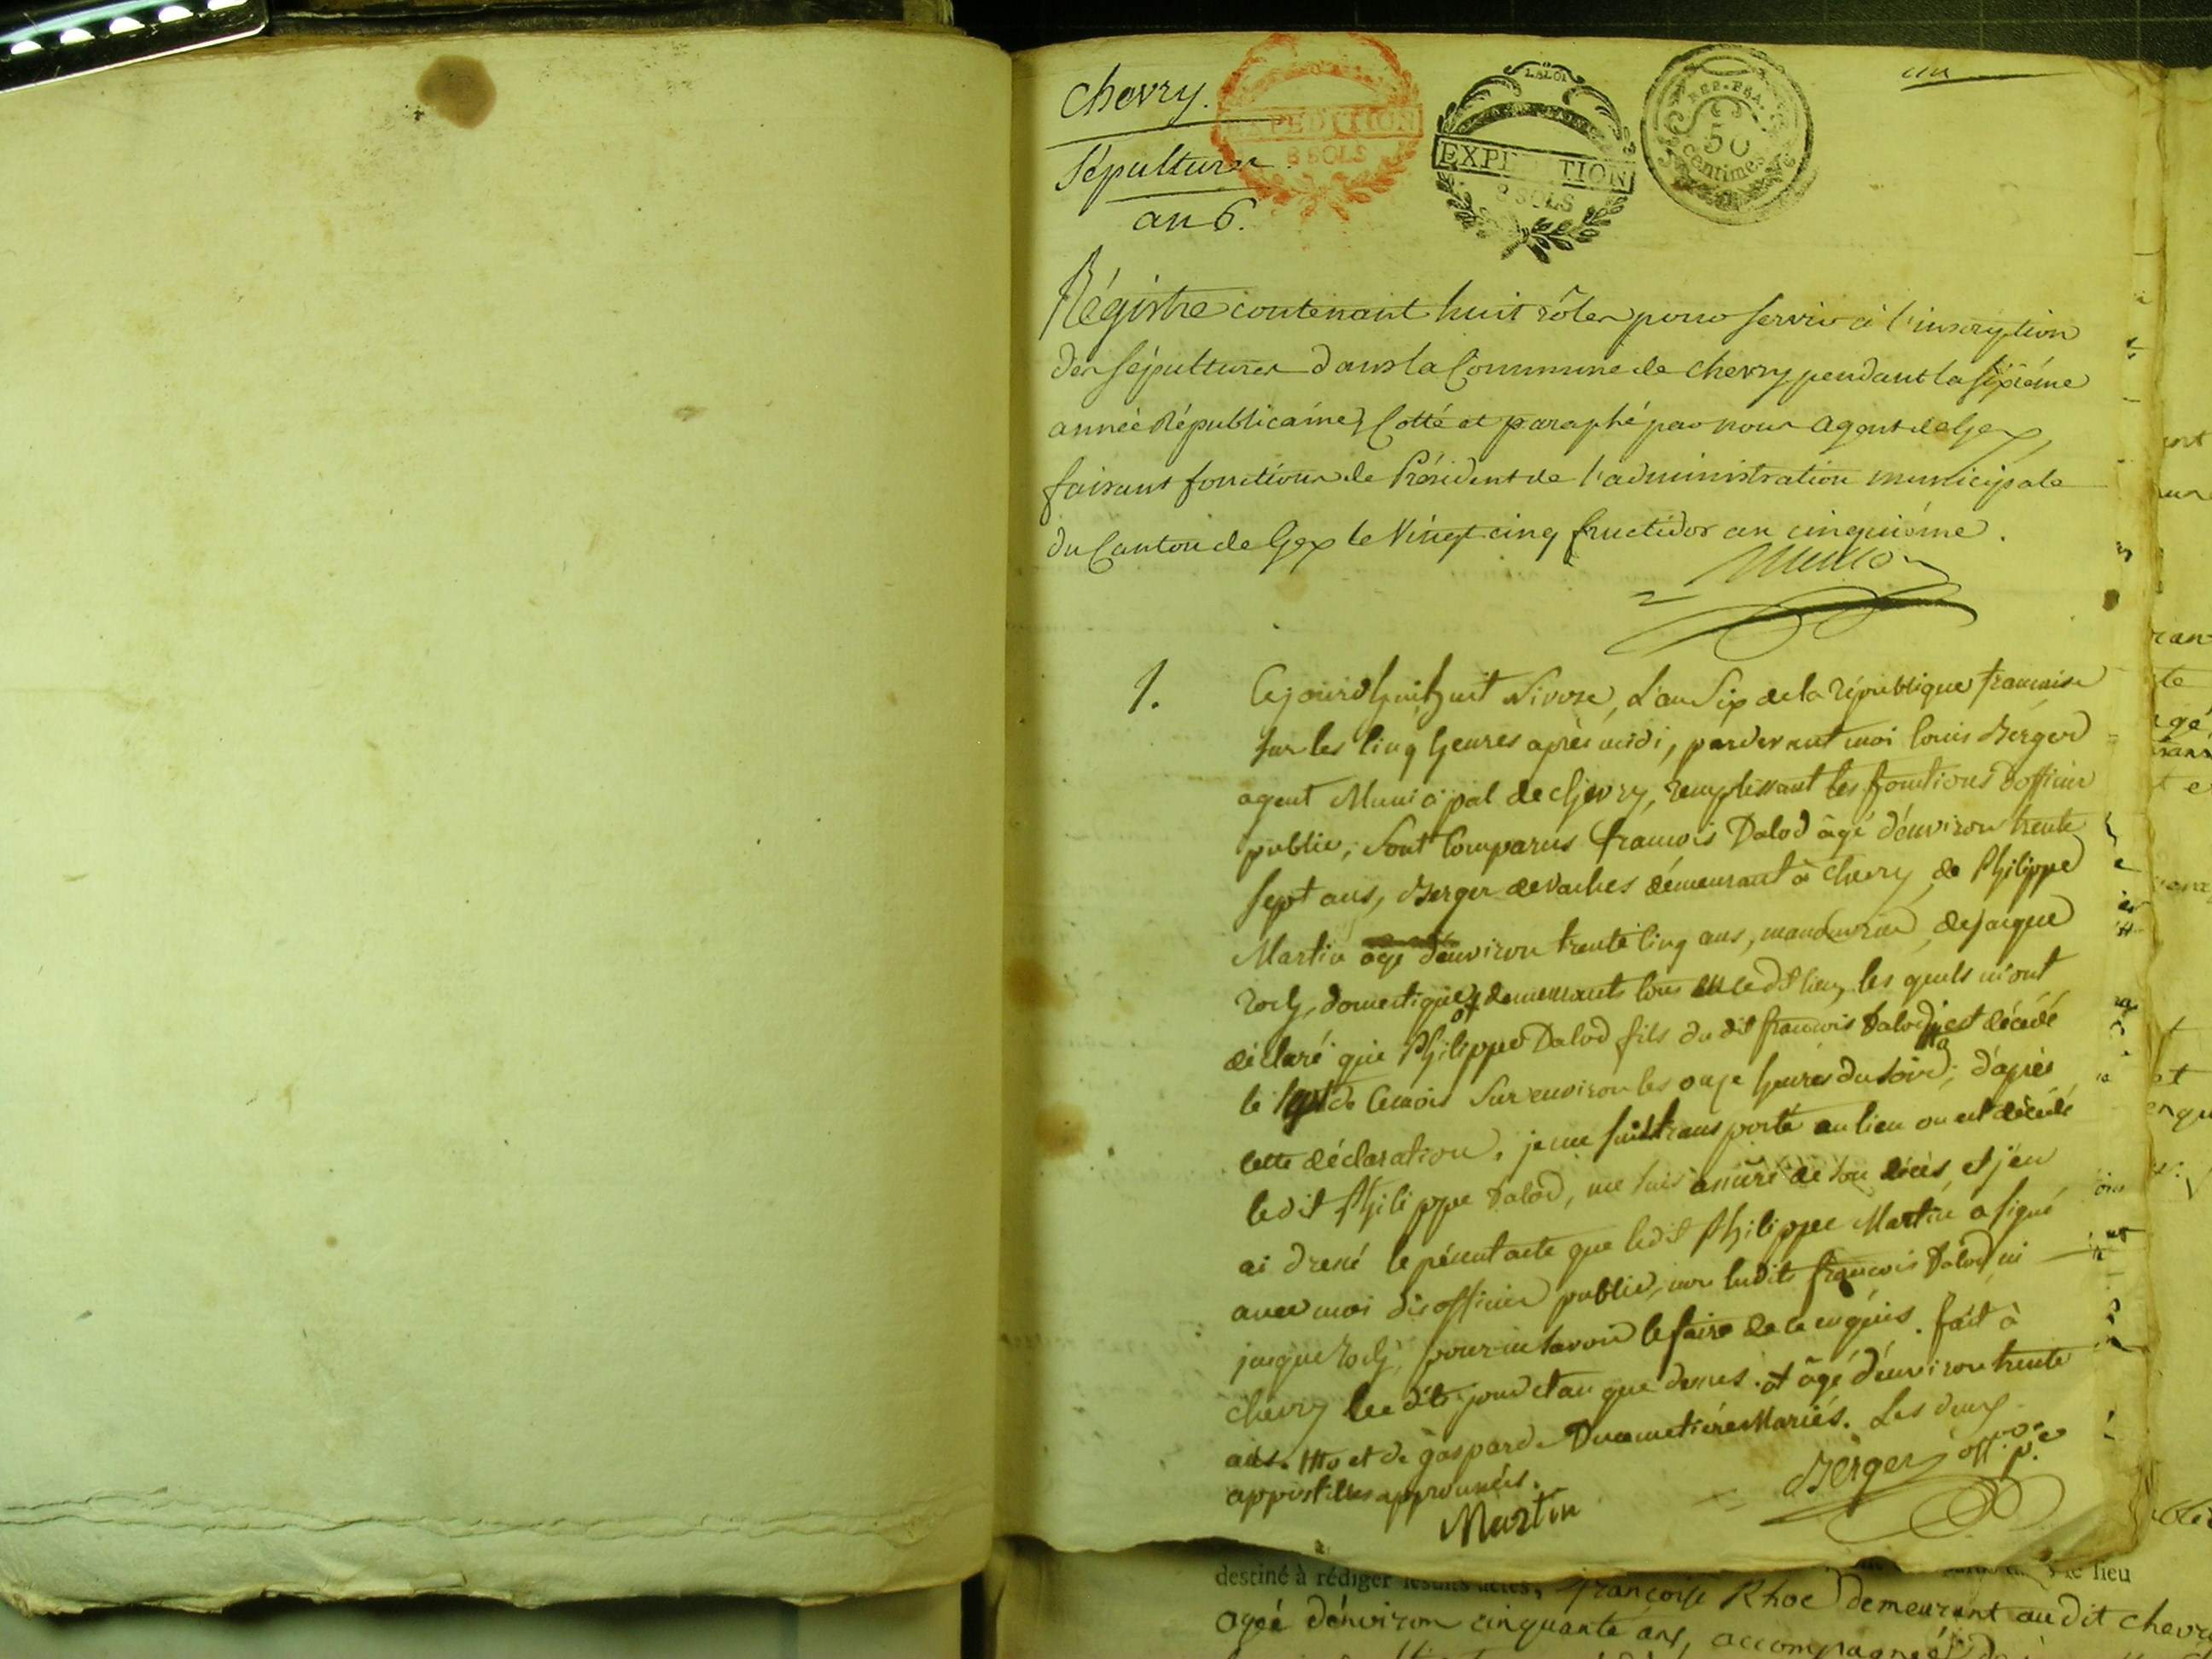 Chevry.
Sépultures
an 6.
EXPEDITION
8 SOLS
LA LOI
EXPEDITION
8 SOLS
REP. FRA.
50
centimes
un
Régistre contenant huit rôles pour servir à l'inscription
des sépultures dans la Commune de chevry pendant la sixiéme
année Républicaine, Cotté et paraphé par nous agent de Gex,
faisant fonctions de Président de l'administration municipale
du Canton de Gex le Vingt cinq fructidor an cinquiéme.
1.
Cejourdhuit huit Nivose, L'an Six de la république francaise
sur les Cinq heures après midi, pardevant moi louis Berger
agent Municipal de chevry, remplissant les fonctions D'officier
public, sont Comparus francois Dalod âgé d'environ trente
sept ans, Berger de vaches démeurant à chevry, de Philippe
Martin agé d'environ trente Cinq ans, manoeuvrier, de jaique
roch, domestique, demeurants tous audit lieu, les quels m'ont
déclaré que Philippe Dalod fils du dit francois Dalod est décédé
le sept de Cemois sur environ les onze heures du soir, d'après
cette déclaration, je me suis transporté au lieu ou est décédé
ledit Philippe Dalod, me suis assuré de son décès, et j'en
ai dressé le présent acte que ledit Philippe Martin a signé
avec moi dit officier public, non lesdits francois Dalod ni
jaique roch, pour ne savoir le faire de ce enquis. fait à
chevry lesdits jour et an que dessus. # âgé d'environ trente
ans. ## et de gasparde Ducimetière Mariés. Les deux
appostilles approuvées.
Martin
Berger off. p.
destiné à rédiger lesdits actes, françoise Rhoc demeurant audit chevry
agée dénviron cinquante ans, accompagnée